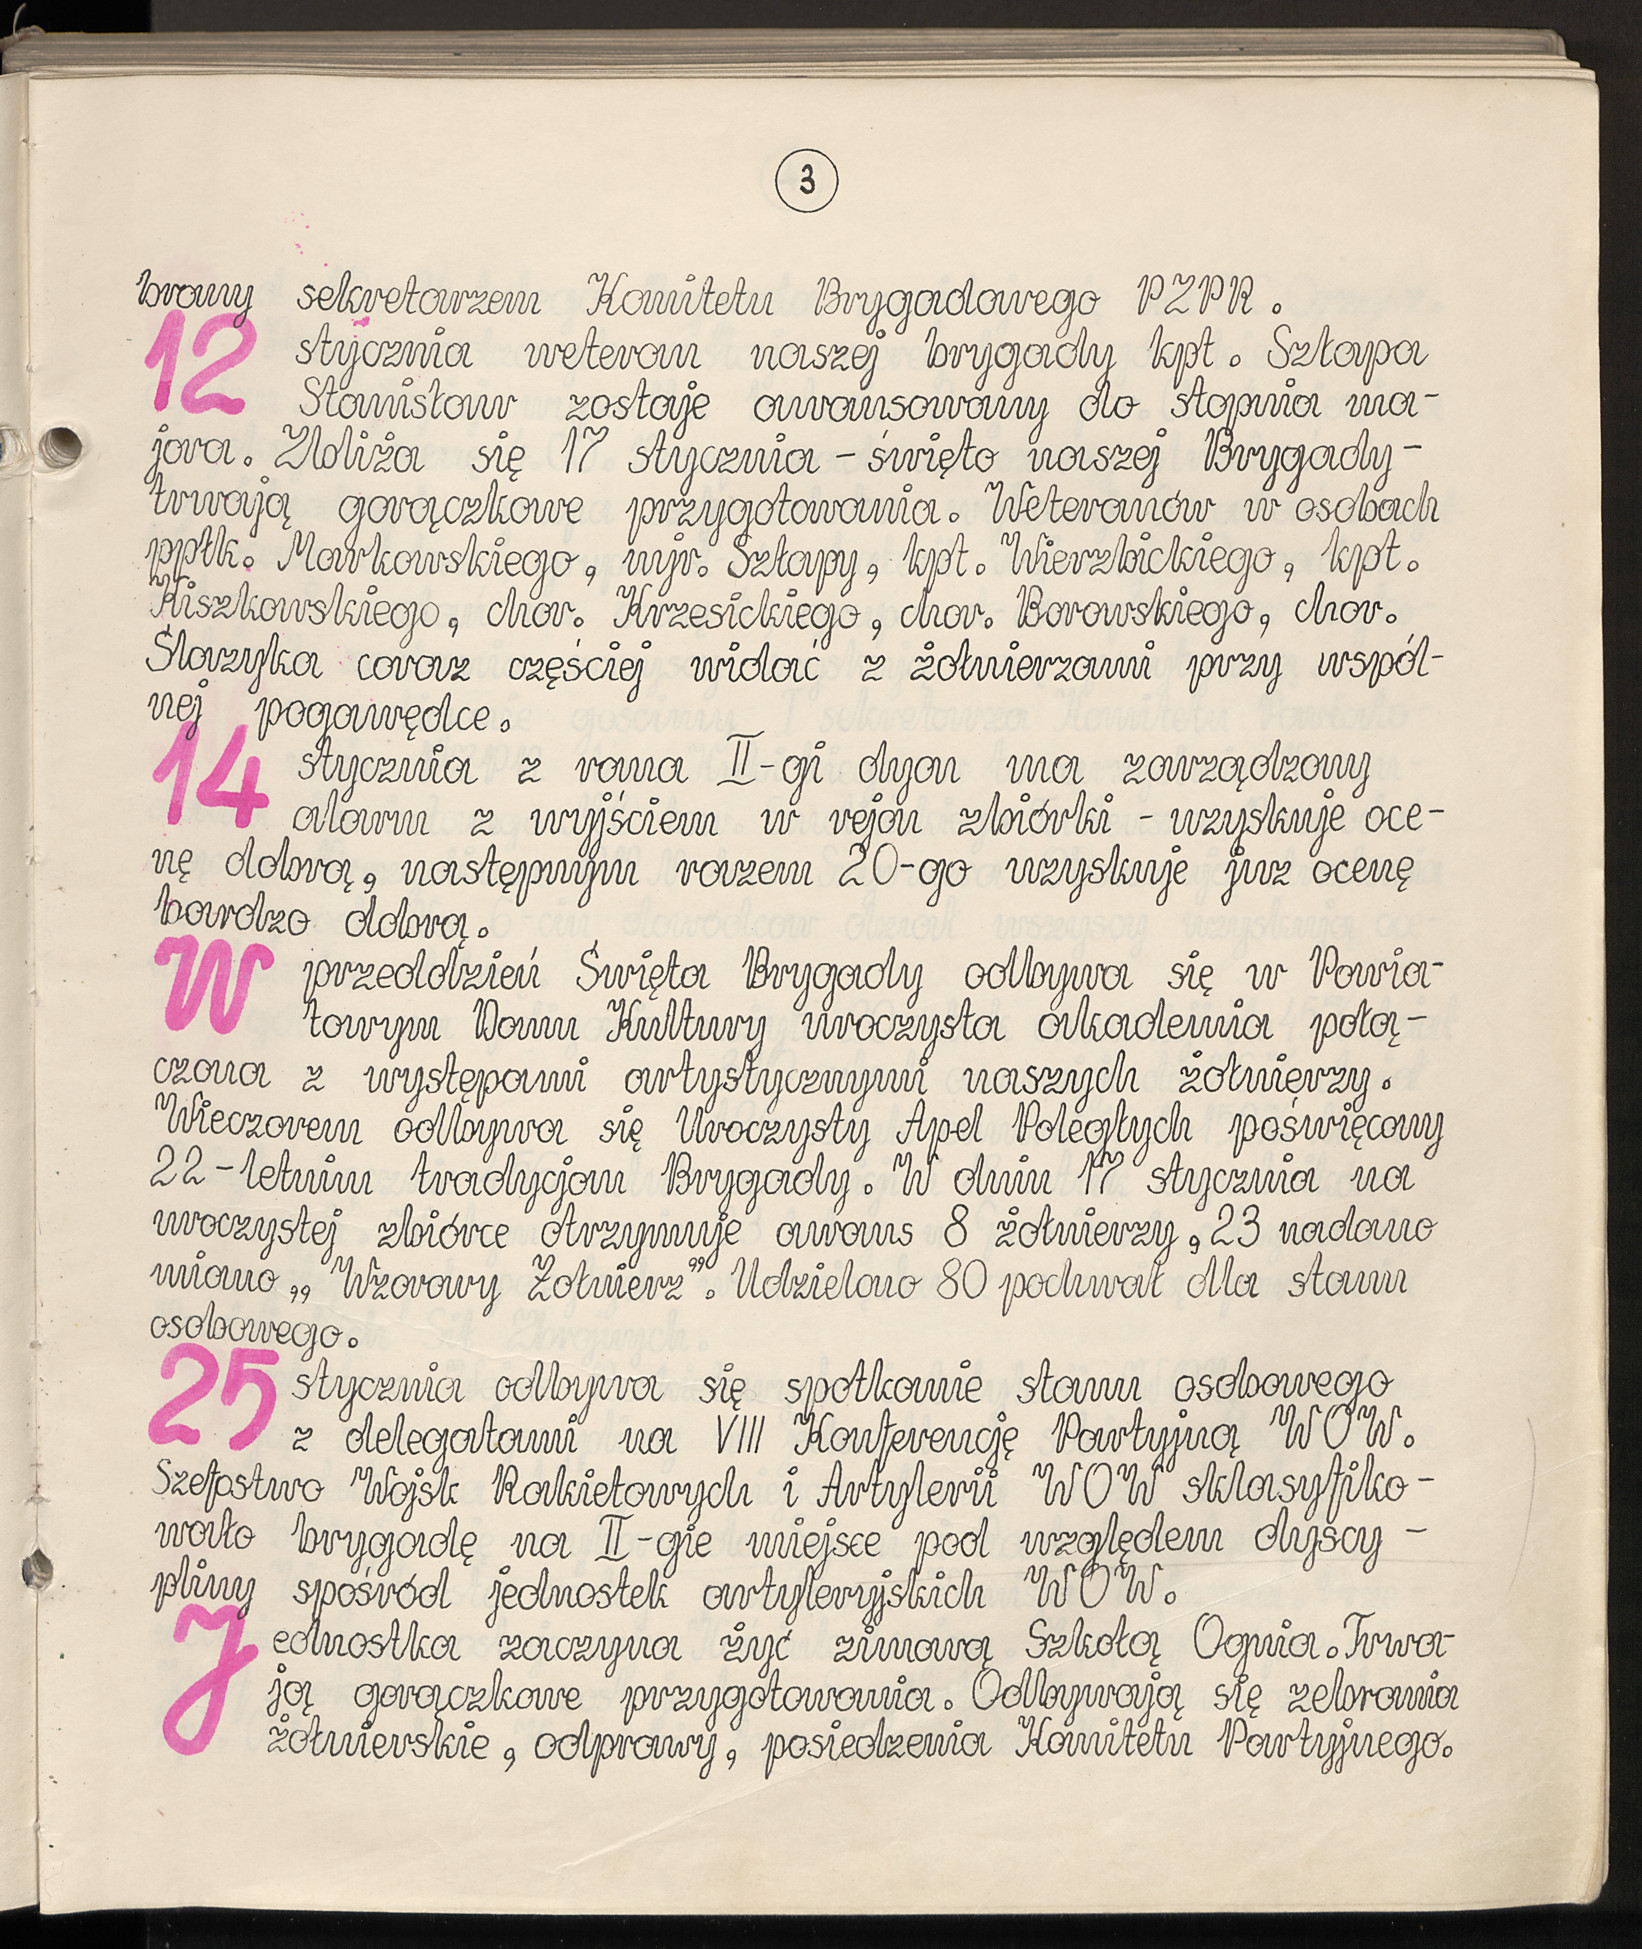 3
brany sekretarzem Komitetu Brygadowego PZPR.
12 stycznia weteran naszej brygady kpt. Szłapa
Stanisław zostaje awansowany do stopnia ma-
jora. Zbliża się 17 stycznia – święto naszej Brygady –
trwają gorączkowe przygotowania. Weteranów w osobach
ppłk. Markowskiego, mjr. Szłapy, kpt. Wierzbickiego, kpt.
Kiszkowskiego, chor. Krzesickiego, chor. Borowskiego, chor.
Ślazyka coraz częściej widać z żołnierzami przy wspól-
nej pogawędce.
14 stycznia z rana II-gi dyon ma zarządzony
alarm z wyjściem w rejon zbiórki – uzyskuje oce-
nę dobrą, następnym razem 20-go uzyskuje juz ocenę
bardzo dobrą.
W przeddzień Święta Brygady odbywa się w Powia-
towym Domu Kultury uroczysta akademia połą-
czona z występami artystycznymi naszych żołnierzy.
Wieczorem odbywa się Uroczysty Apel Poległych poświęcony
22-letnim tradycjom Brygady. W dniu 17 stycznia na
uroczystej zbiórce otrzymuje awans 8 żołnierzy, 23 nadano
miano „Wzorowy Żołnierz”. Udzielono 80 pochwał dla stanu
osobowego.
25 stycznia odbywa się spotkanie stanu osobowego
z delegatami na VIII Konferencję Partyjną WOW.
Szefostwo Wojsk Rakietowych i Artylerii WOW sklasyfiko-
wało brygadę na II-gie miejsce pod względem dyscy-
pliny spośród jednostek artyleryjskich WOW.
Jednostka zaczyna żyć zimową Szkołą Ognia. Trwa-
ją gorączkowe przygotowania. Odbywają się zebrania
żołnierskie, odprawy, posiedzenia Komitetu Partyjnego.